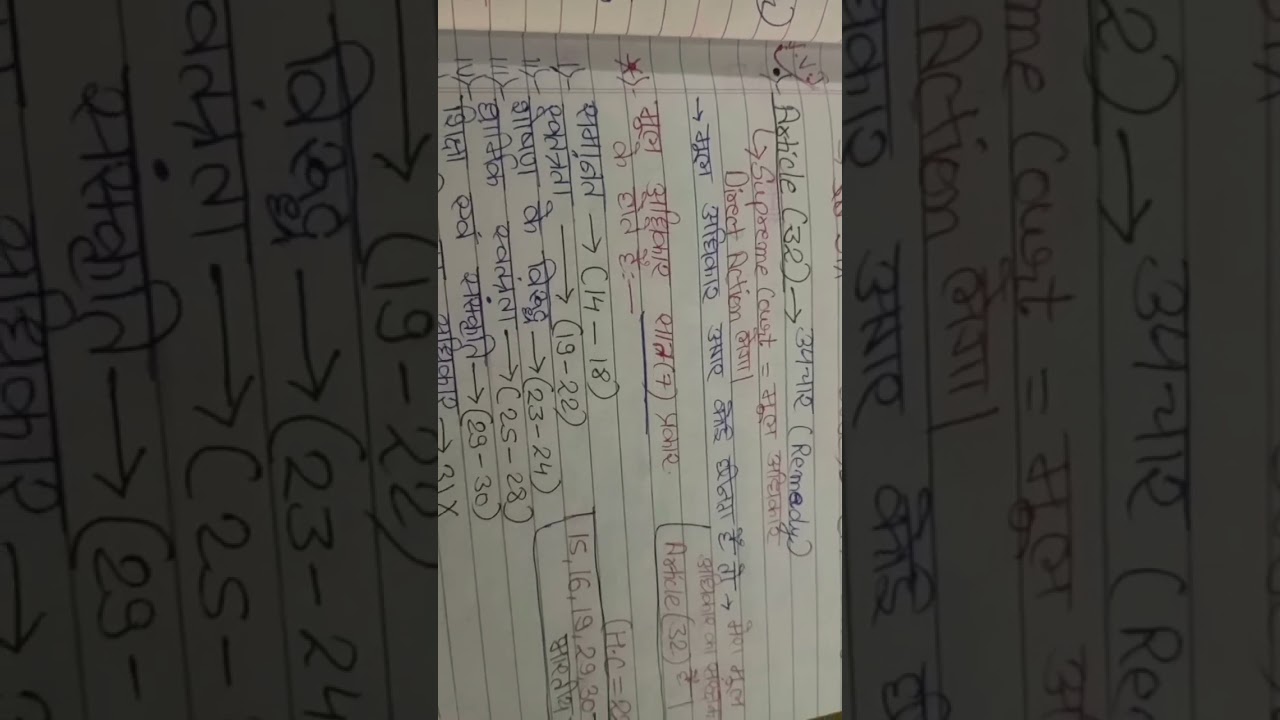 Article (32) → उपचार (Remedy)
↳ Supreme Court = मूल अधिकार
Direct Action लेगा।
→ मूल अधिकार अगर कोई छीनता है तो → मेरा मूल
Article (32) है
*) मूल अधिकार सात (7) प्रकार
के होते हैं:—
I) समानता → (14 - 18)
II) स्वतंत्रता → (19 - 22)
III) शोषण के विरुद्ध → (23 - 24)
III) धार्मिक स्वतंत्रता → (25 - 28)
IV) शिक्षा एवं संस्कृति → (29 - 30)
अधिकार → 31X
(H.C =
15, 16, 19, 29, 30
भारतीय